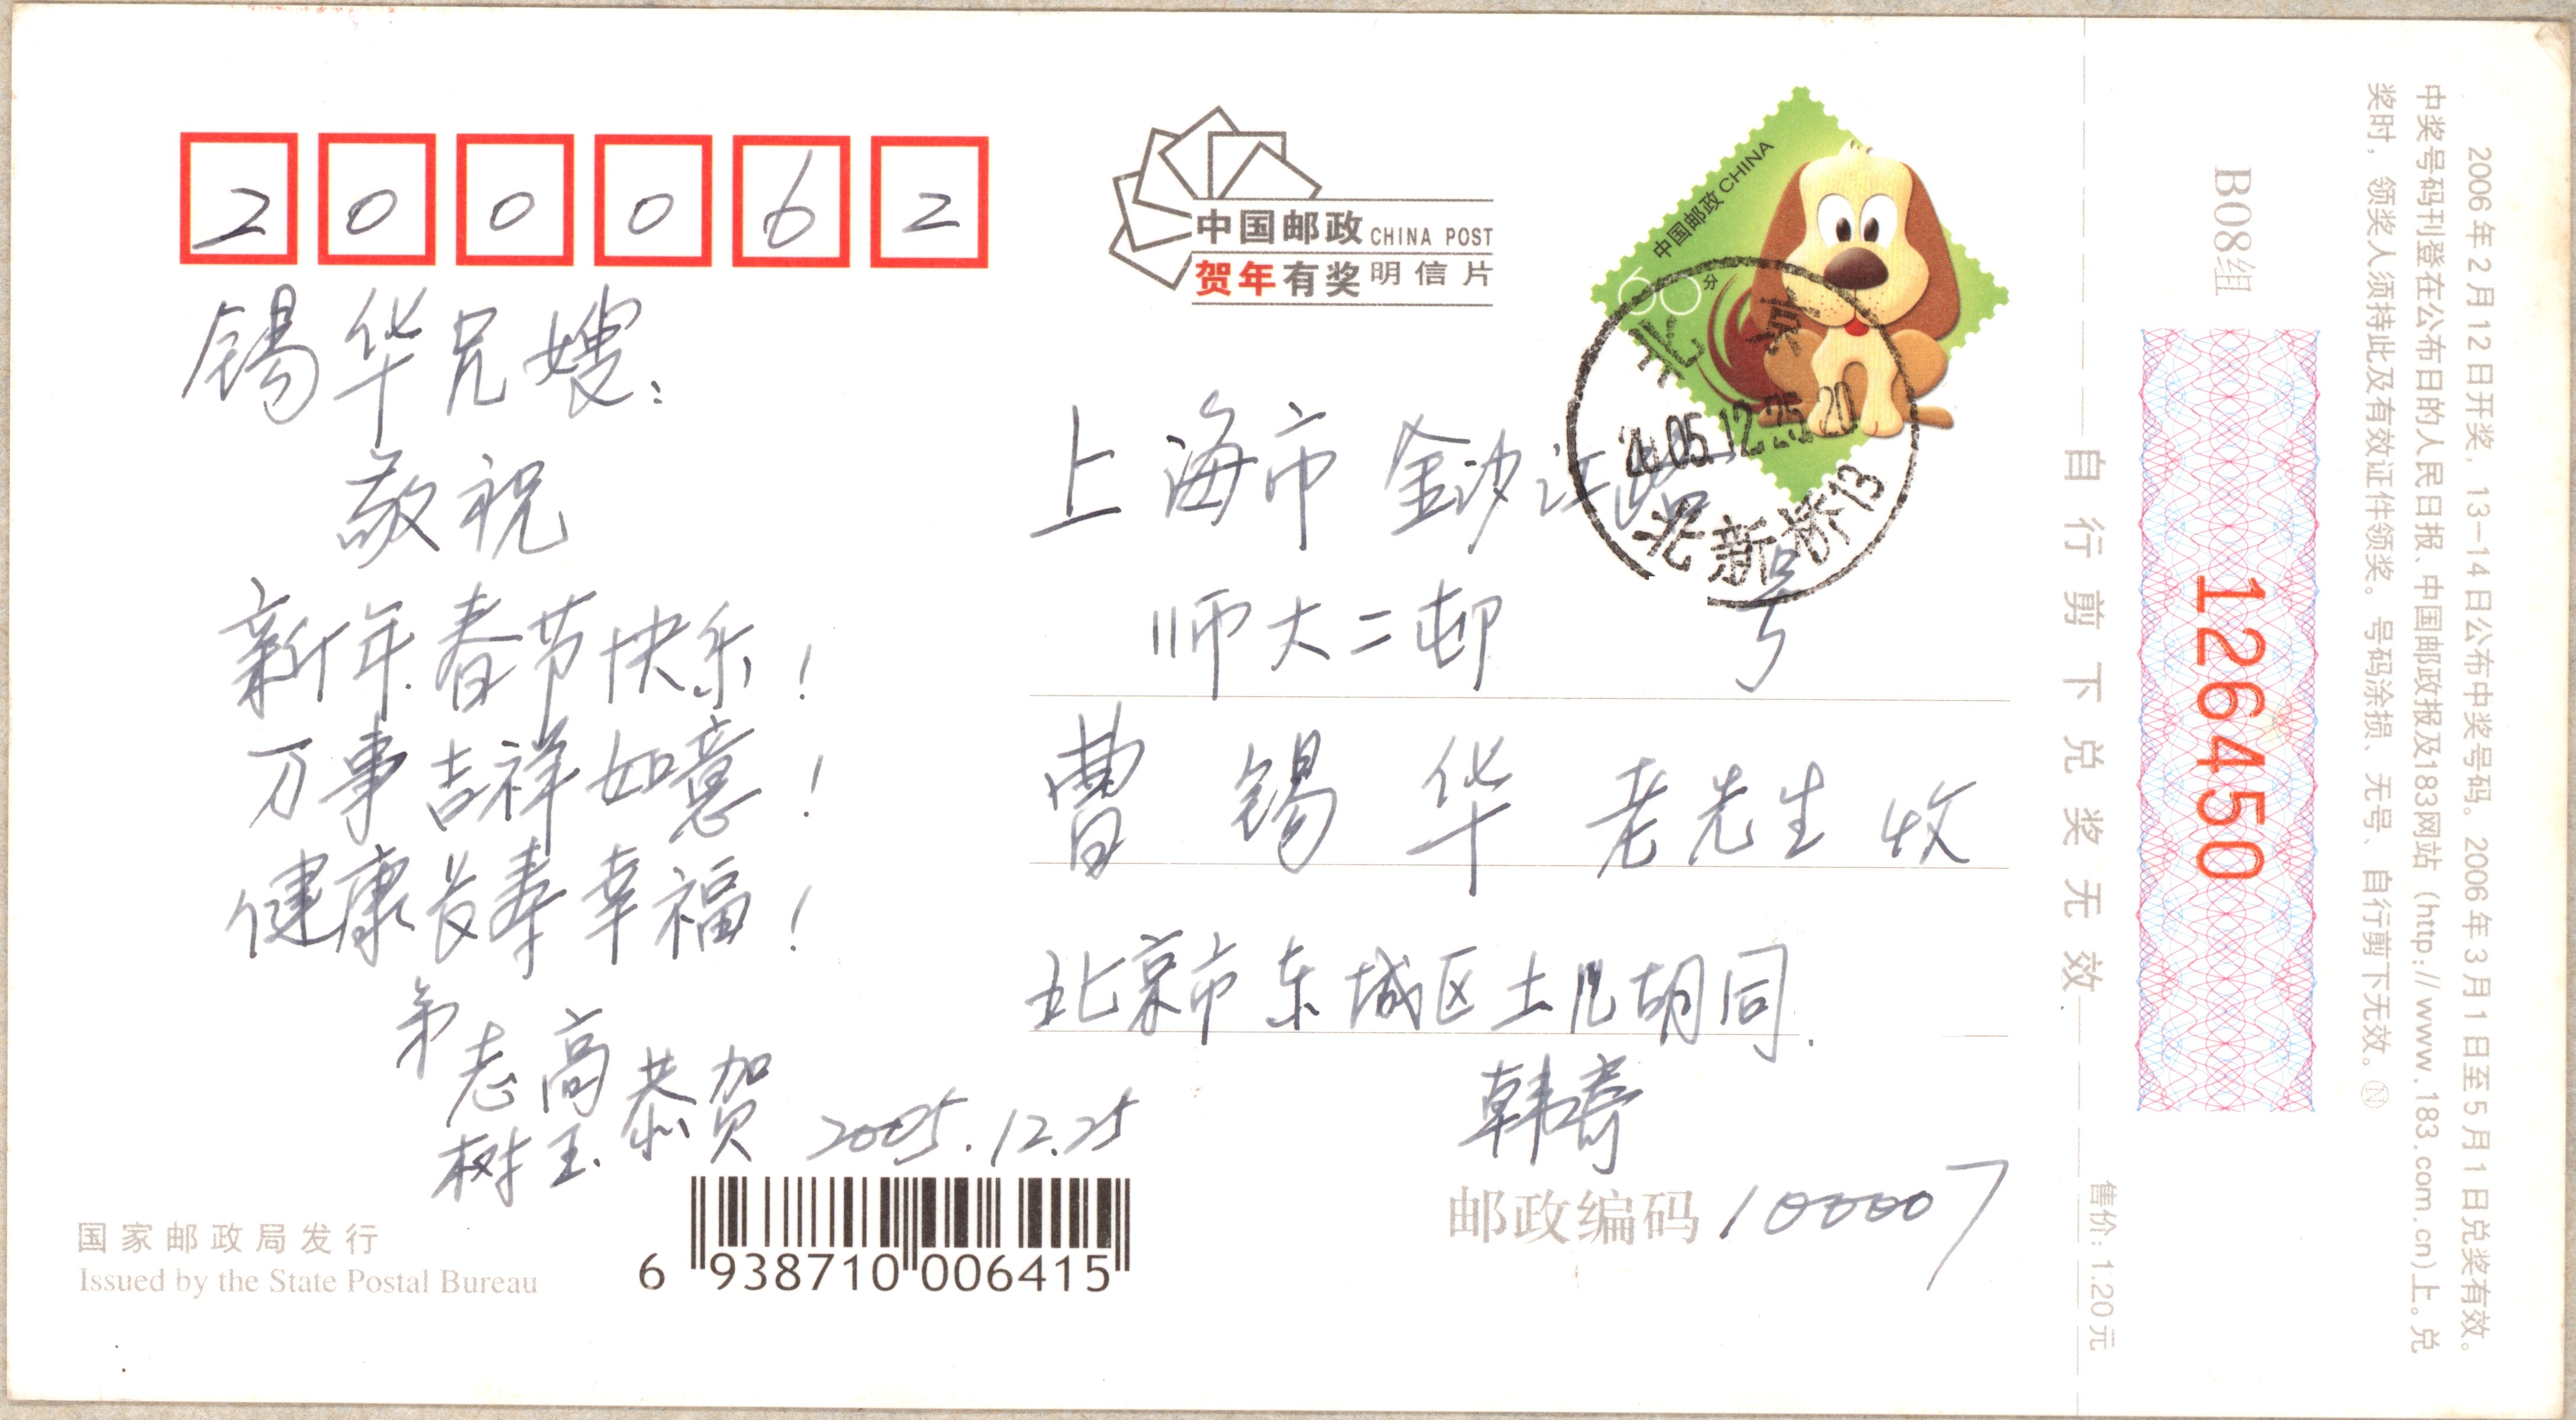 200062
中国邮政 CHINA POST
贺年有奖明信片
中国邮政 CHINA
60分
北京
2005.12.25.20
北新桥13
锡华兄嫂：
敬祝
新年.春节快乐！
万事吉祥如意！
健康长寿幸福！
弟
志高
树玉.
恭贺
2005.12.25
上海市金沙江路
师大二邨 号
曹锡华 老先生 收
北京市东城区土儿胡同.
韩寄
邮政编码 100007
国家邮政局发行
Issued by the State Postal Bureau
6 938710 006415
自行剪下兑奖无效
售价：1.20元
B08组
126450
2006年2月12日开奖，13—14日公布中奖号码。2006年3月1日至5月1日兑奖有效。
中奖号码刊登在公布日的人民日报、中国邮政报及183网站（http://www.183.com.cn)上。兑
奖时，领奖人须持此及有效证件领奖。号码涂损、无号、自行剪下无效。Ⓝ